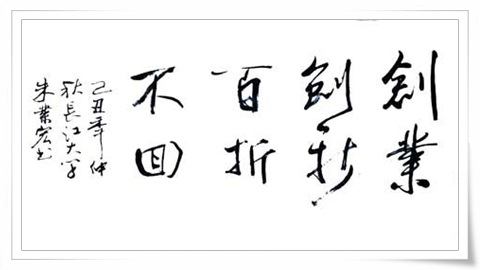 創業
創新
百折
不回
己丑年仲
秋長江大学
朱業宏书